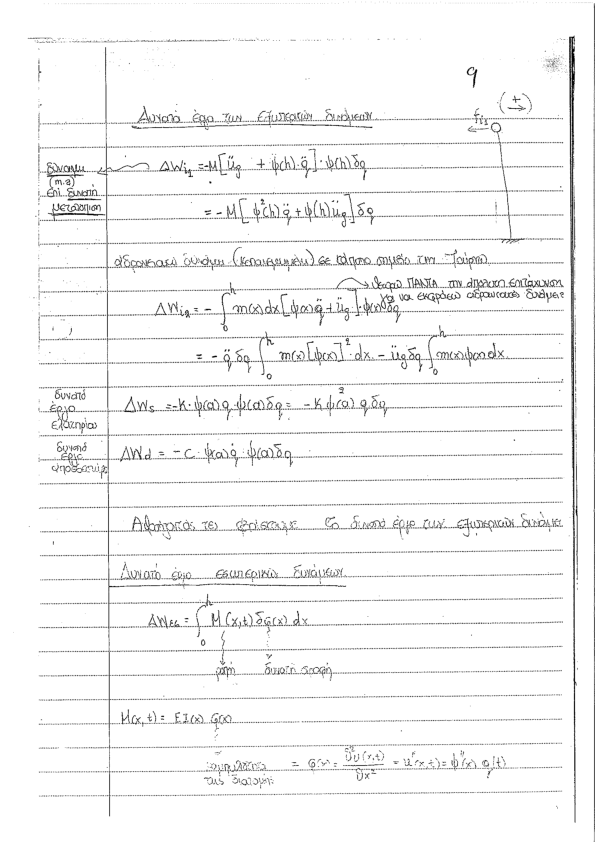 9
Δυνατό έργο των εξωτερικών δυνάμεων.
(+→)
f_i1
δύναμη (m.a) επί δυνατή μετατόπιση
ΔW_i1 = -M[ü_g + ψ(h)·q̈]·ψ(h)δq
= -M[ψ²(h)q̈ + ψ(h)ü_g]δq
αδρανειακή δύναμη (κατανεμημένη) σε κάποιο σημείο της
θεωρώ ΠΑΝΤΑ την απόλυτη επιτάχυνση
για να εκφράσω αδρανειακές δυνάμεις
ΔW_i2 = -∫₀ʰ m(x)dx[ψ(x)q̈ + ü_g]·ψ(x)δq
= -q̈ δq ∫₀ʰ m(x)[ψ(x)]²·dx - ü_g δq ∫₀ʰ m(x)ψ(x)dx.
δυνατό έργο ελατηρίου
ΔW_s = -K·ψ(a)q·ψ(a)δq = -Kψ²(a) q δq
δυνατό έργο αποσβεστήρα
ΔW_d = -c·ψ(a)q̇·ψ(a)δq
το δυνατό έργο των εξωτερικών δυνάμε
Δυνατό έργο εσωτερικών δυνάμεων.
ΔW_εσ = ∫₀ʰ M(x,t)δφ(x)dx
ροπή δυνατή στροφή
M(x,t) = EI(x) φ(x)
καμπυλότητα της διατομής
= φ(x) = ∂²u(x,t)/∂x² = u''(x,t) = ψ''(x) q(t)